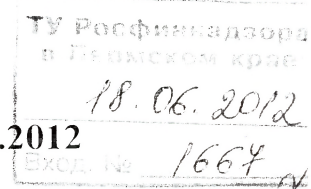 ТУ Росфиннадзора
в Пермском крае
18.06.2012
.2012
Вход. № 1667